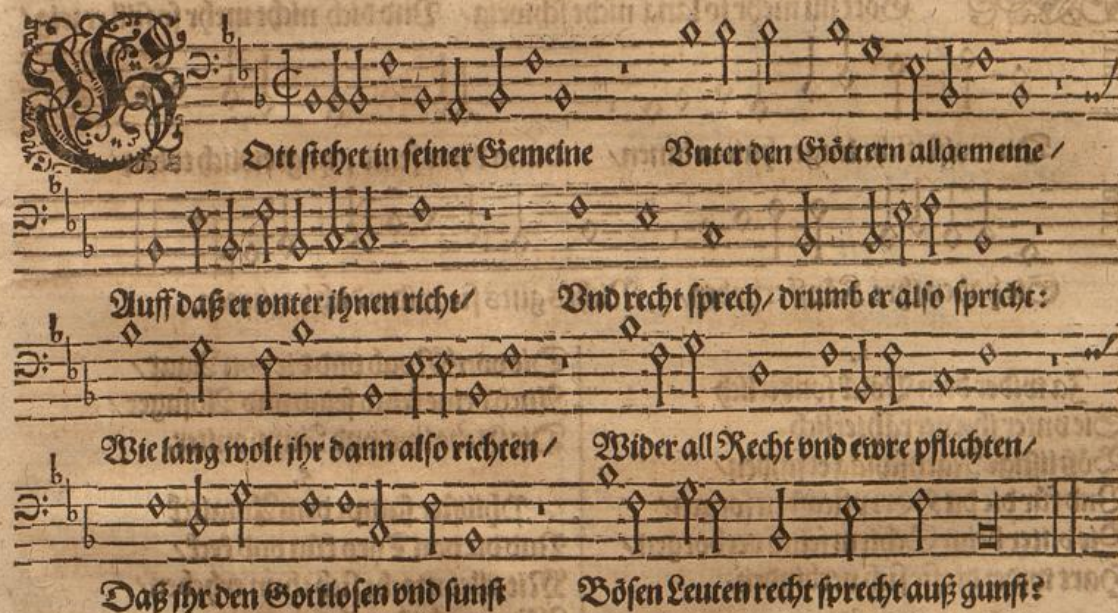 GOtt stehet in seiner Gemeine Vnter den Göttern allgemeine /
Auff daß er vnter jhnen richt / Vnd recht sprech / drumb er also spricht:
Wie lang wolt jhr dann also richten / Wider all Recht vnd ewre pflichten /
Daß jhr den Gottlosen vnd sunst Bösen Leuten recht sprecht auß gunst?